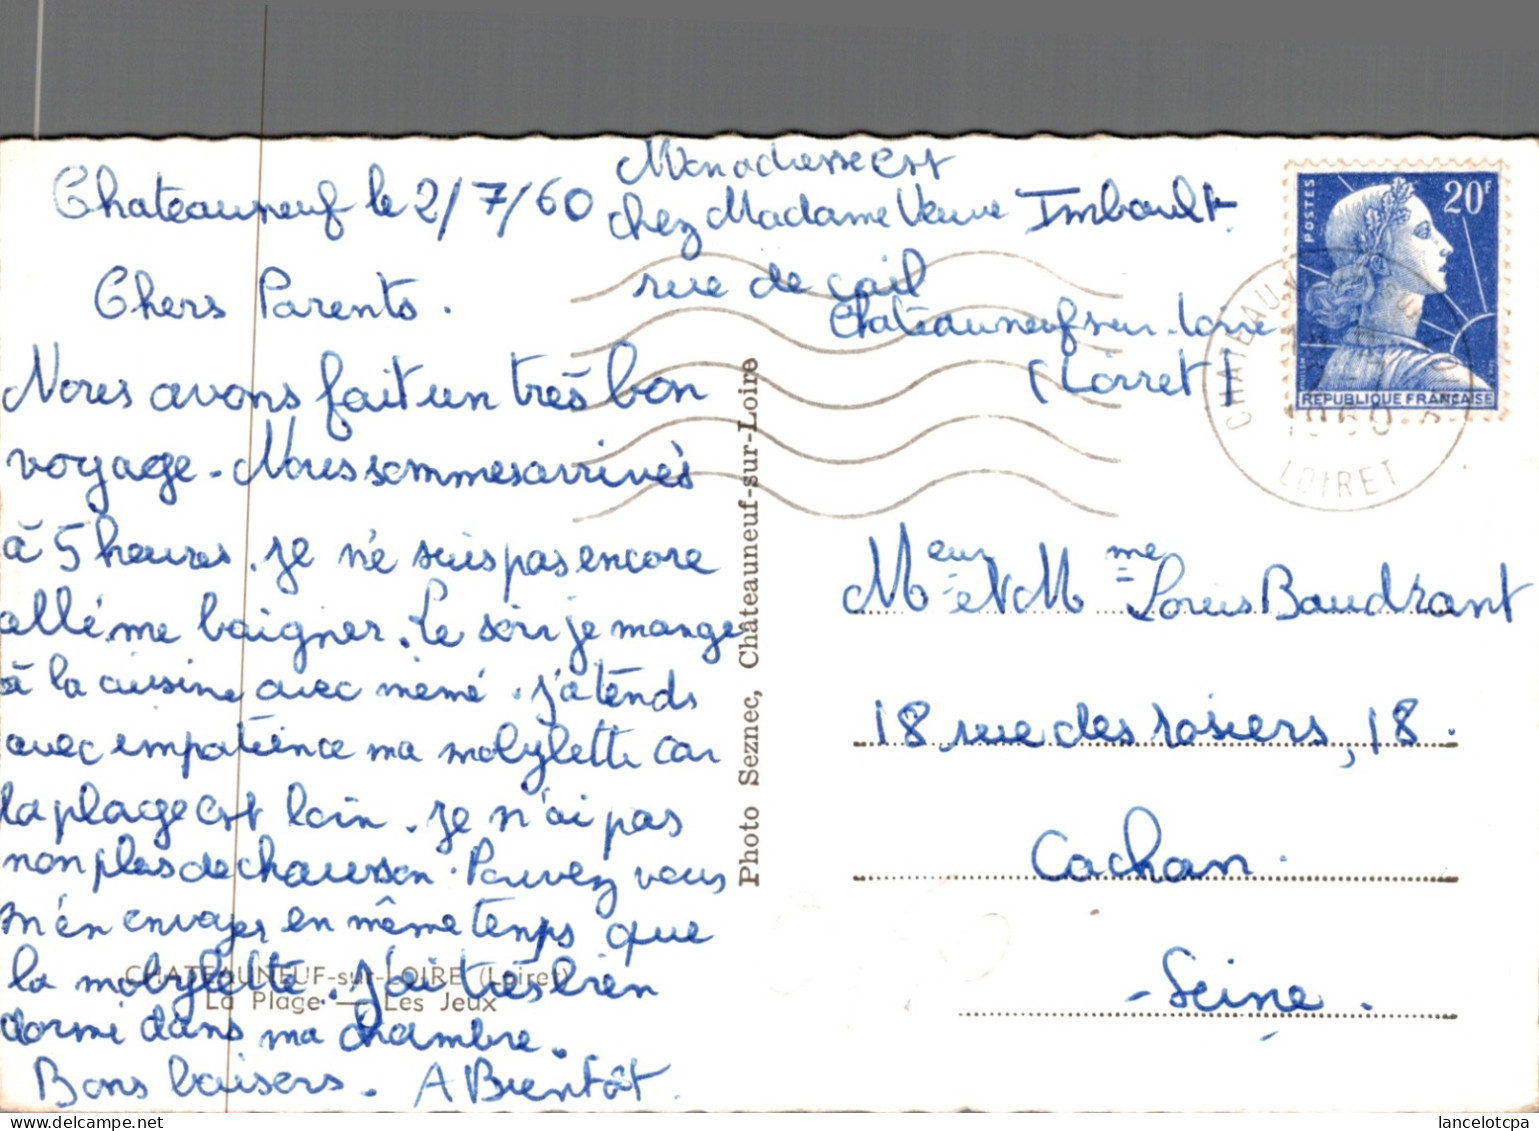 Chateauneuf le 2/7/60
Mon adresse est
chez Madame Veuve Imbault
rue de
Chateauneuf sur-Loire
(Loiret)
Chers Parents.
Nous avons fait un très bon
voyage. Nous sommes arrivés
à 5 heures. Je ne suis pas encore
allé me baigner. Le soir je mange
à la cuisine avec mémé. J'atends
avec impatience ma mobylette car
la plage est loin. Je n'ai pas
non plus de chausson. Pouvez vous
m'en envoyer en même temps que
la mobylette. J'ai très bien
dormi dans ma chambre.
Bons baisers. A Bientôt.
CHATEAUNEUF-sur-LOIRE (Loiret)
La Plage — Les Jeux
Photo Seznec, Châteauneuf-sur-Loire
POSTES
20F
REPUBLIQUE FRANÇAISE
1960
LOIRET
Meur et Mme Louis Baudrant
18 rue des rosiers, 18.
Cachan.
-Seine.
lancelotcpa